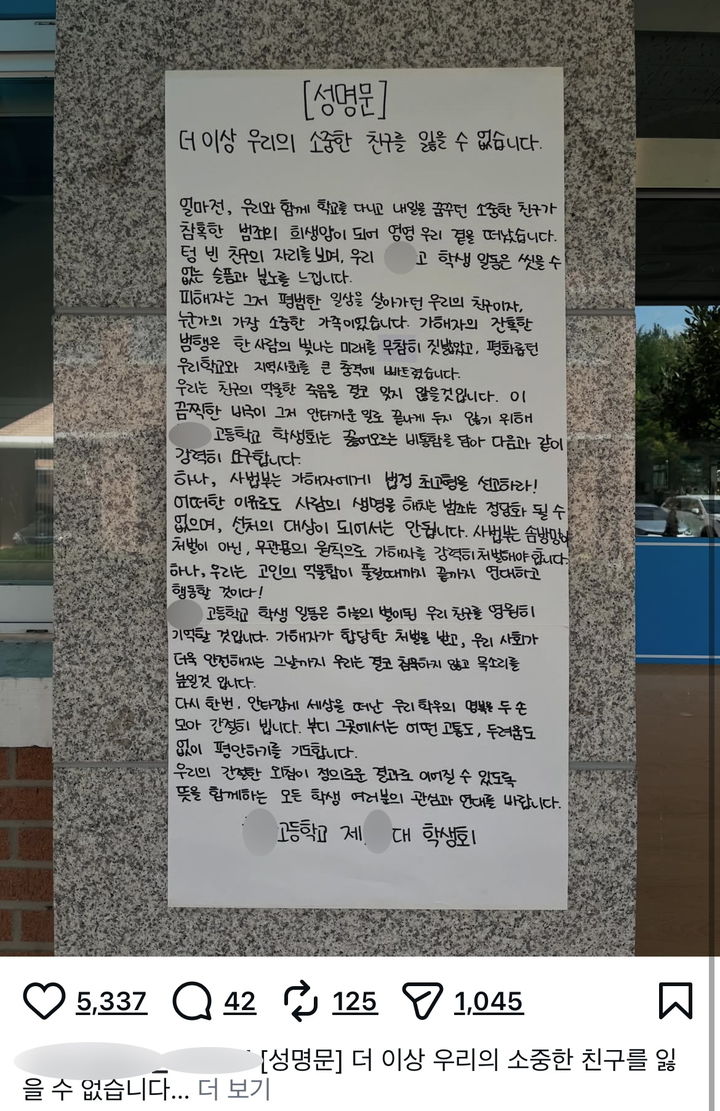 [성명문]
더 이상 우리의 소중한 친구를 잃을 수 없습니다.
얼마전, 우리와 함께 학교를 다니고 내일을 꿈꾸던 소중한 친구가
참혹한 범죄의 희생양이 되어 영영 우리 곁을 떠났습니다.
텅 빈 친구의 자리를 보며, 우리 고 학생 일동은 씻을 수
없는 슬픔과 분노를 느낍니다.
피해자는 그저 평범한 일상을 살아가던 우리의 친구이자,
누군가의 가장 소중한 가족이었습니다. 가해자의 잔혹한
범행은 한 사람의 빛나는 미래를 무참히 짓밟았고, 평화롭던
우리학교와 지역사회를 큰 충격에 빠트렸습니다.
우리는 친구의 억울한 죽음을 결코 잊지 않을것입니다. 이
끔찍한 비극이 그저 안타까운 일로 끝나게 두지 않기 위해
고등학교 학생회는 끓어오르는 비통함을 담아 다음과 같이
강력히 요구합니다.
하나, 사법부는 가해자에게 법정 최고형을 선고하라!
어떠한 이유로도 사람의 생명을 해치는 범죄는 정당화 될 수
없으며, 선처의 대상이 되어서는 안됩니다. 사법부는 솜방망이
처벌이 아닌, 무관용의 원칙으로 가해자를 강력히 처벌해야 합니다.
하나, 우리는 고인의 억울함이 풀릴때까지 끝까지 연대하고
행동할 것이다!
고등학교 학생 일동은 하늘의 별이된 우리 친구를 영원히
기억할 것입니다. 가해자가 합당한 처벌을 받고, 우리 사회가
더욱 안전해지는 그날까지 우리는 결코 침묵하지 않고 목소리를
높일것 입니다.
다시 한번, 안타깝게 세상을 떠난 우리 학우의 명복을 두 손
모아 간절히 빕니다. 부디 그곳에서는 어떤 고통도, 두려움도
없이 평안하기를 기도합니다.
우리의 간절한 외침이 정의로운 결과로 이어질 수 있도록
뜻을 함께하는 모든 학생 여러분의 관심과 연대를 바랍니다.
고등학교 제 대 학생회
5,337 42 125 1,045
[성명문] 더 이상 우리의 소중한 친구를 잃
을 수 없습니다... 더 보기